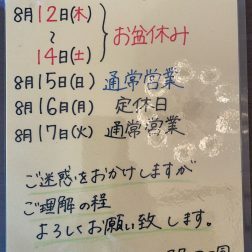 8月12日(木)
～ お盆休み
14日(土)
8月15日(日) 通常営業
8月16日(月) 定休日
8月17日(火) 通常営業
ご迷惑をおかけしますが
ご理解の程
よろしくお願い致します。